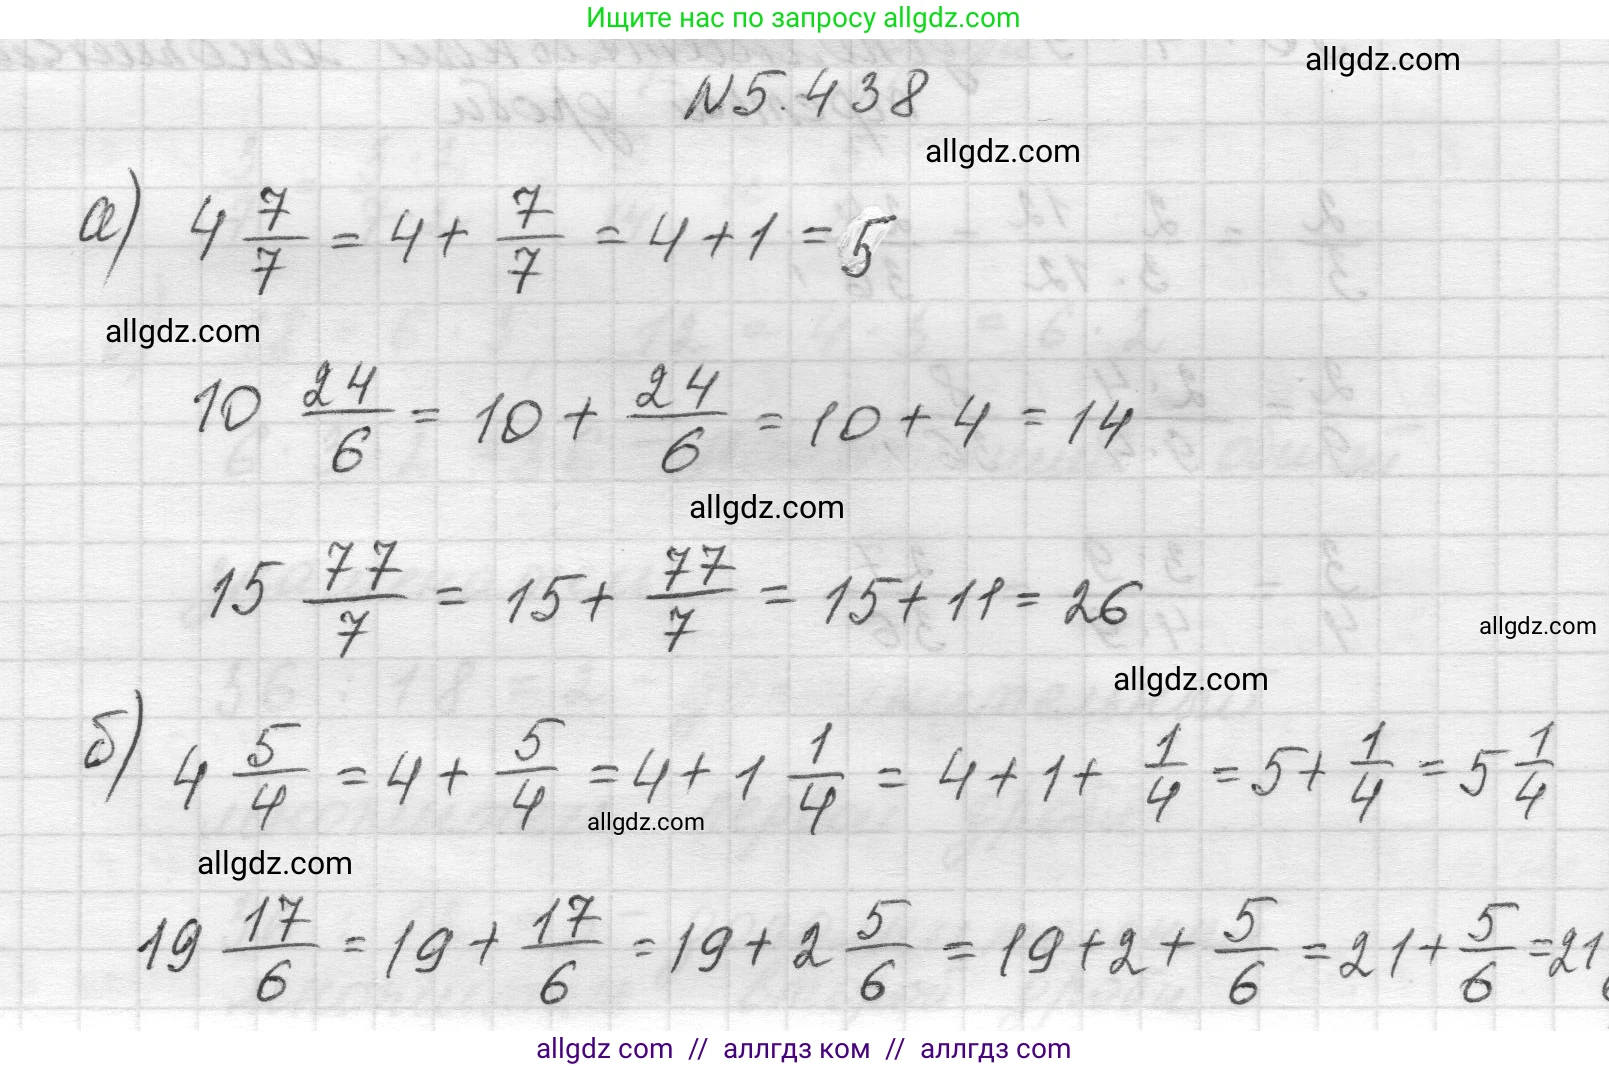 Ищите нас по запросу allgdz.com
allgdz.com
N5.438
allgdz.com
а) 4 7/7 = 4 + 7/7 = 4 + 1 = 5
allgdz.com
10 24/6 = 10 + 24/6 = 10 + 4 = 14
allgdz.com
15 77/7 = 15 + 77/7 = 15 + 11 = 26
allgdz.com
allgdz.com
б) 4 5/4 = 4 + 5/4 = 4 + 1 1/4 = 4 + 1 + 1/4 = 5 + 1/4 = 5 1/4
allgdz.com
allgdz.com
19 17/6 = 19 + 17/6 = 19 + 2 5/6 = 19 + 2 + 5/6 = 21 + 5/6 = 21
allgdz.com // аллгдз ком // аллгдз com